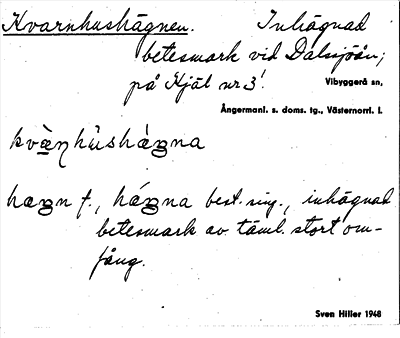 Kvarnhushägnen. Inhägnad
betesmark vid Dalsjöån;
på Kjäl nr 3!
Vibyggerå sn,
Ångermanl. s. doms. tg., Västernorrl. l.
hägn f., hägna best. sing., inhägnad
betesmark av täml. stort om-
fång.
Sven Hiller 1948